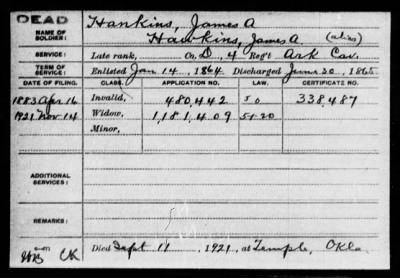 DEAD
NAME OF SOLDIER: Hankins, James A
Hawkins, James A. (alias)
SERVICE: Late rank, Co. D, 4 Reg't Ark Cav.
TERM OF SERVICE: Enlisted Jan 14, 1864 Discharged June 30, 1865
DATE OF FILING. CLASS. APPLICATION NO. LAW. CERTIFICATE NO.
1883 Apr 16 Invalid, 480,442 50 338,487
1921 Nov 14 Widow, 1,181,409 5-1-20
Minor,
ADDITIONAL SERVICES:
REMARKS:
Died Sept 11, 1921, at Temple, Okla.